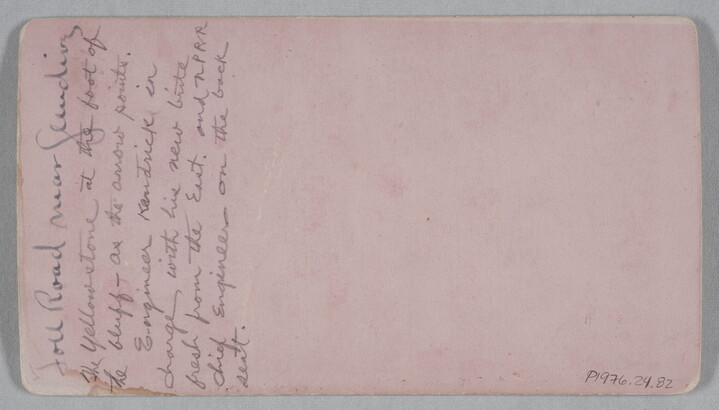 Toll Road near Glendive
The Yellowstone at the foot of
the bluff - as the arrow points.
Engineer Kendrick in
charge, with his new bride
fresh from the East. and NPRR
chief Engineer on the back
seat.
P1976.24.82